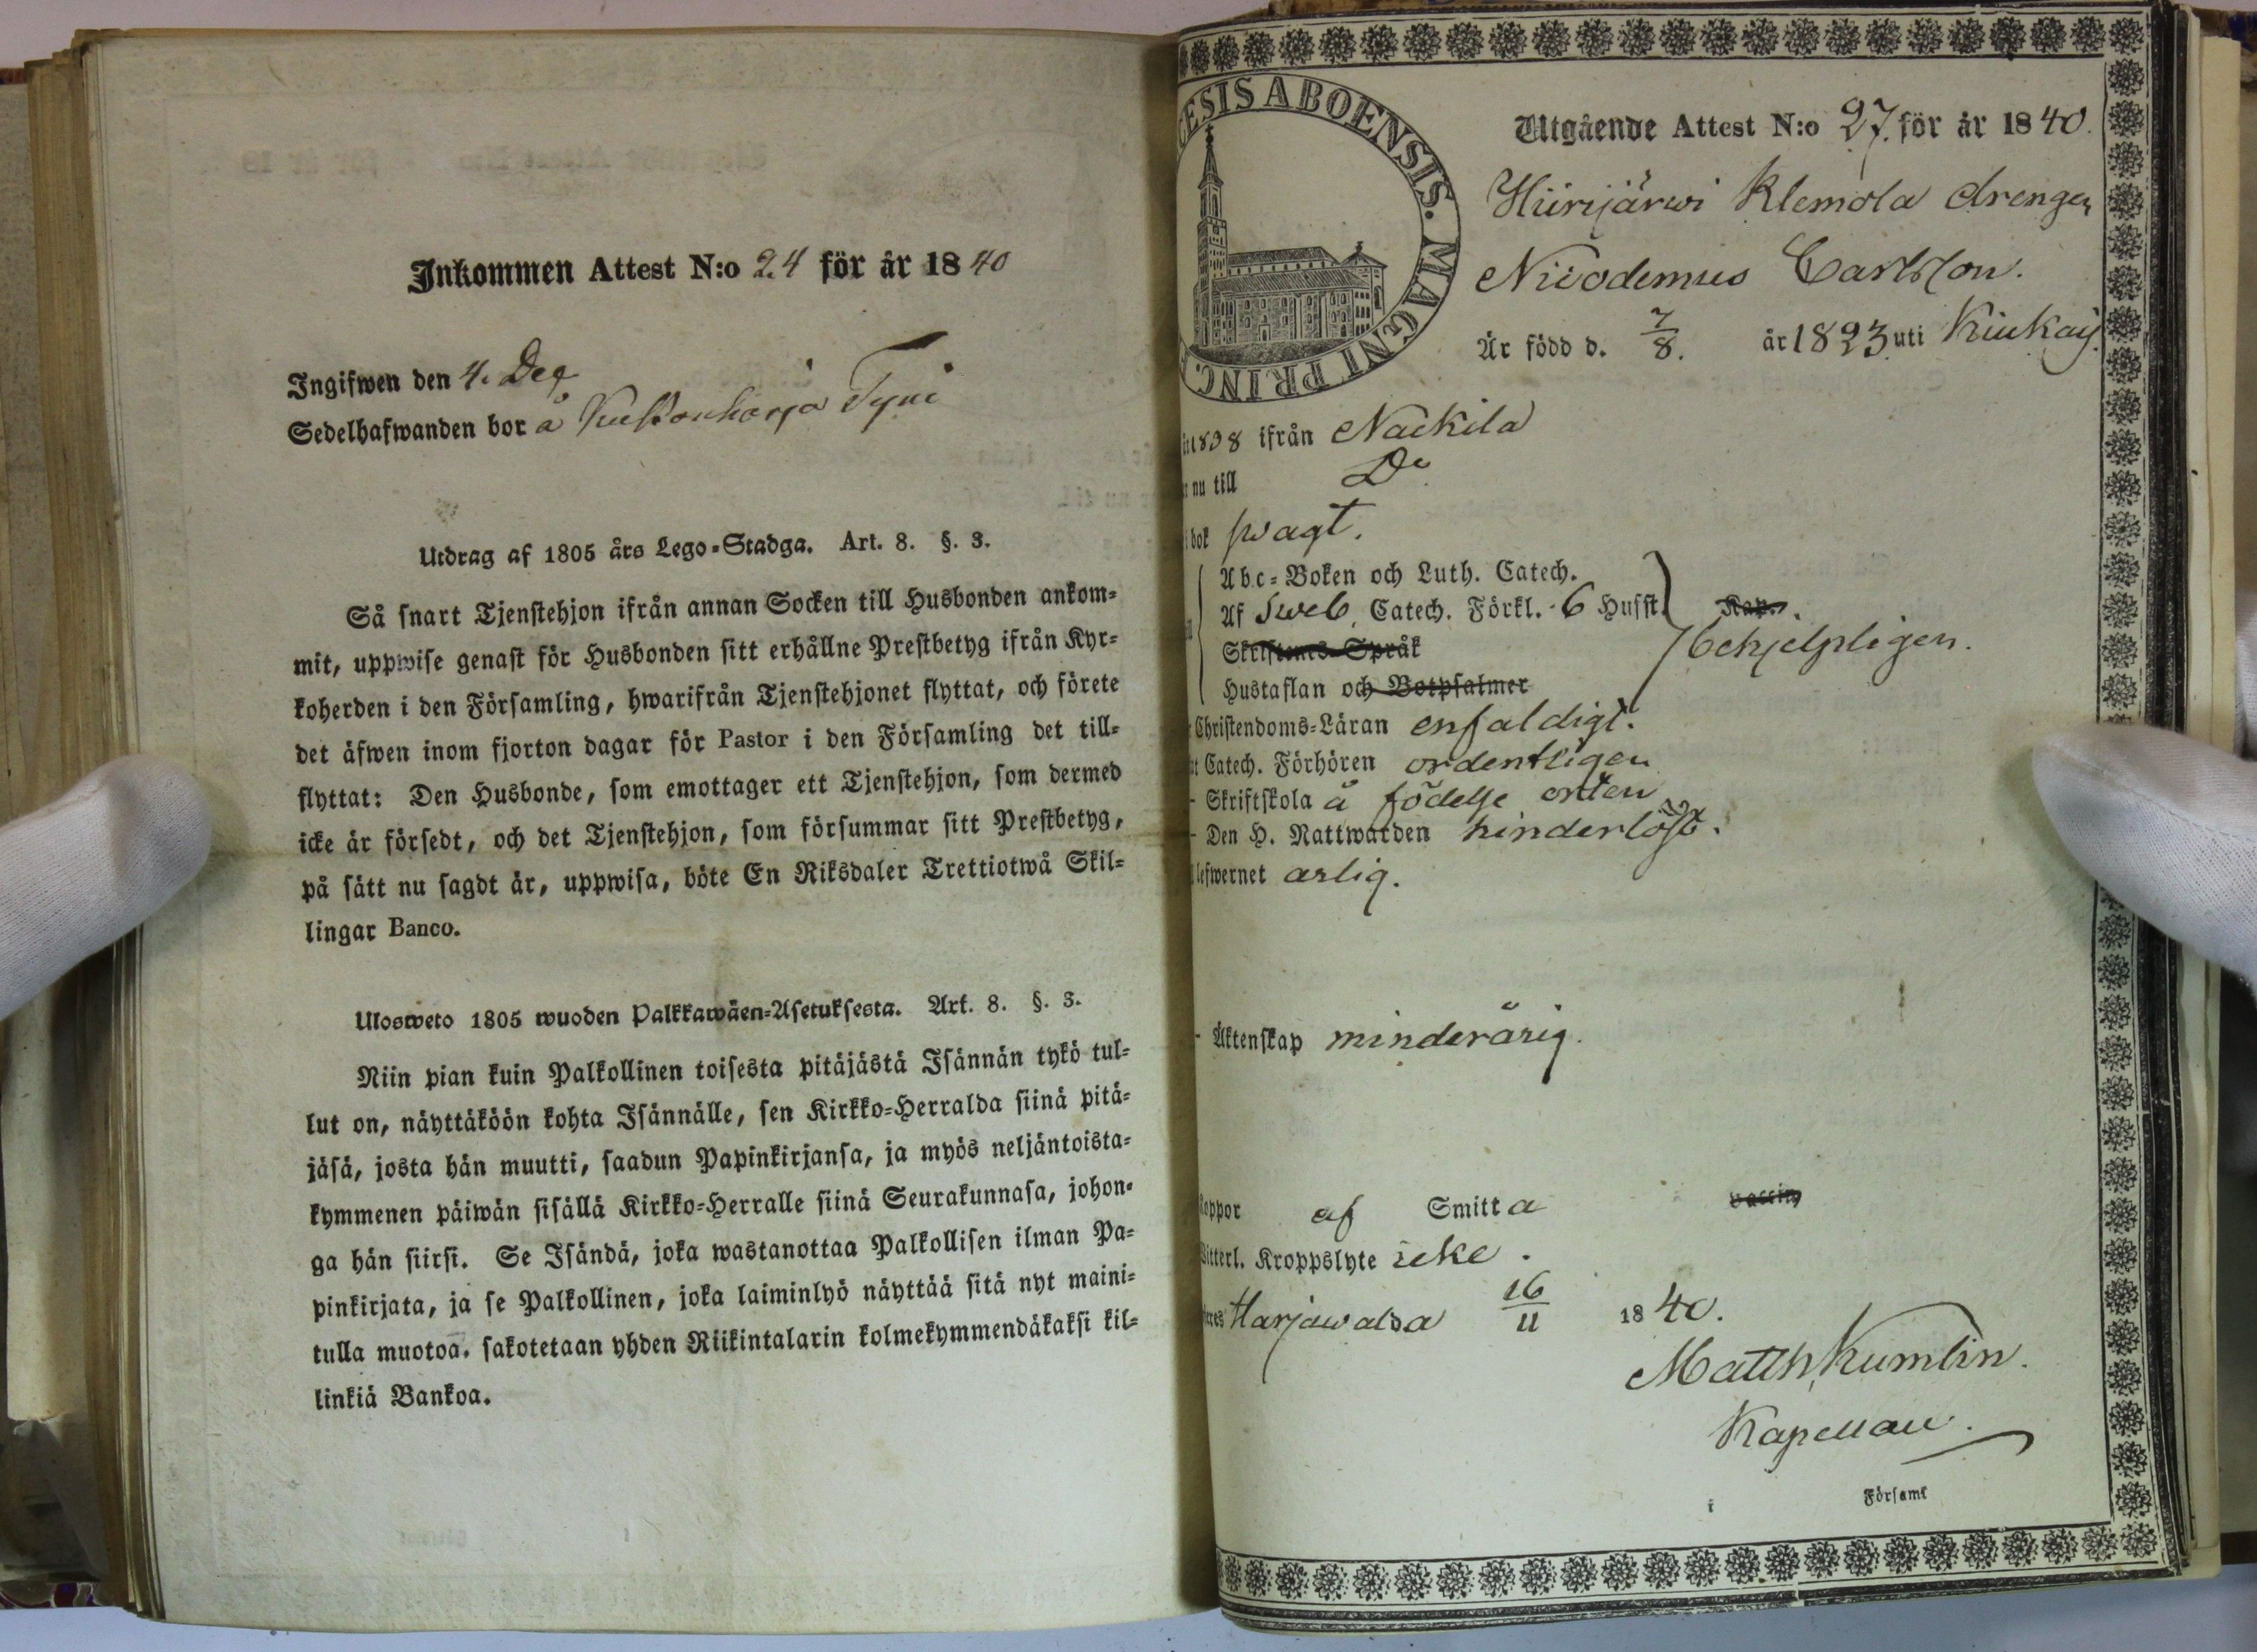 Inkommen Attest N:o 24 för år 1840
Ingifwen den 4. Dec
Sedelhafwanden bor å Tyni
Utdrag af 1805 års Lego-Stadga. Art. 8. §. 3.
Så snart Tjenstehjon ifrån annan Socken till Husbonden ankom-
mit, uppwise genast för Husbonden sitt erhållne Prestbetyg ifrån Kyr-
koherden i den Församling, hwarifrån Tjenstehjonet flyttat, och förete
det äfwen inom fjorton dagar för Pastor i den Församling det till-
flyttat: Den Husbonde, som emottager ett Tjenstehjon, som dermed
icke är försedt, och det Tjenstehjon, som försummar sitt Prestbetyg,
på sätt nu sagdt är, uppwisa, böte En Riksdaler Trettiotwå Skil-
lingar Banco.
Ulosweto 1805 wuoden Palkkawäen-Asetuksesta. Art. 8. §. 3.
Niin pian kuin Palkollinen toisesta pitäjästä Isännän tykö tul-
lut on, näyttäköön kohta Isännälle, sen Kirkko-Herralda siinä pitä-
jäsä, josta hän muutti, saadun Papinkirjansa, ja myös neljäntoista-
kymmenen päiwän sisällä Kirkko-Herralle siinä Seurakunnasa, johon-
ga hän siirsi. Se Isändä, joka wastanottaa Palkollisen ilman Pa-
pinkirjata, ja se Palkollinen, joka laiminlyö näyttää sitä nyt maini-
tulla muotoa, sakotetaan yhden Riikintalarin kolmekymmendäkaksi kil-
linkiä Bankoa.
ESIS ABOENSIS. MAGNI PRINC.
Utgående Attest N:o 27. för år 1840.
Hiirijärwi Klemola drengen
Nicodemus Carlsson.
Är född d. 7/8. år 1823 uti Kiukais
1838 ifrån Nackila
nu till Do
bok swagt.
Abc-Boken och Luth. Catech.
Af Sweb. Catech. Förkl. 6 Husst.
Skriftenes Språk
behjelpligen.
Hustaflan och Botpsalmer
Christendoms-Läran enfaldigt.
Catech. Förhören ordentligen
Skriftskola å födelse orten
Den H. Nattwarden hinderlöst.
lefwernet ärlig.
Äktenskap minderårig.
koppor af Smitta
Witterl. Kroppslyte icke.
Harjawalda 16/11 1840.
Matth. Kumlin.
Kapellan.
i Församl